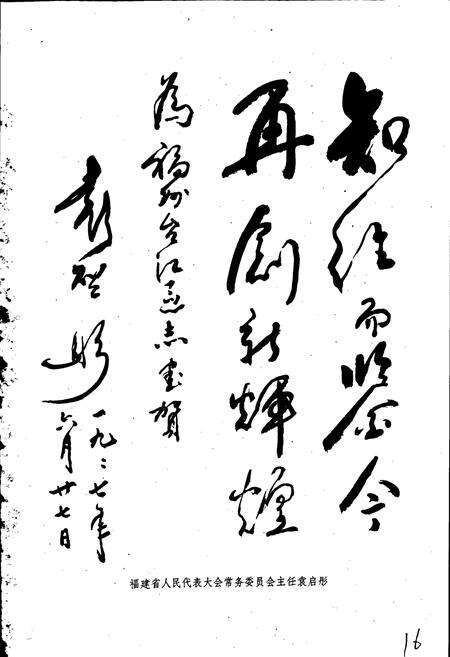 知往而鑒今
再創新輝煌
為福州台江区志書賀
袁啓彤
一九九七年
六月廿七日
福建省人民代表大会常务委员会主任袁启彤
16